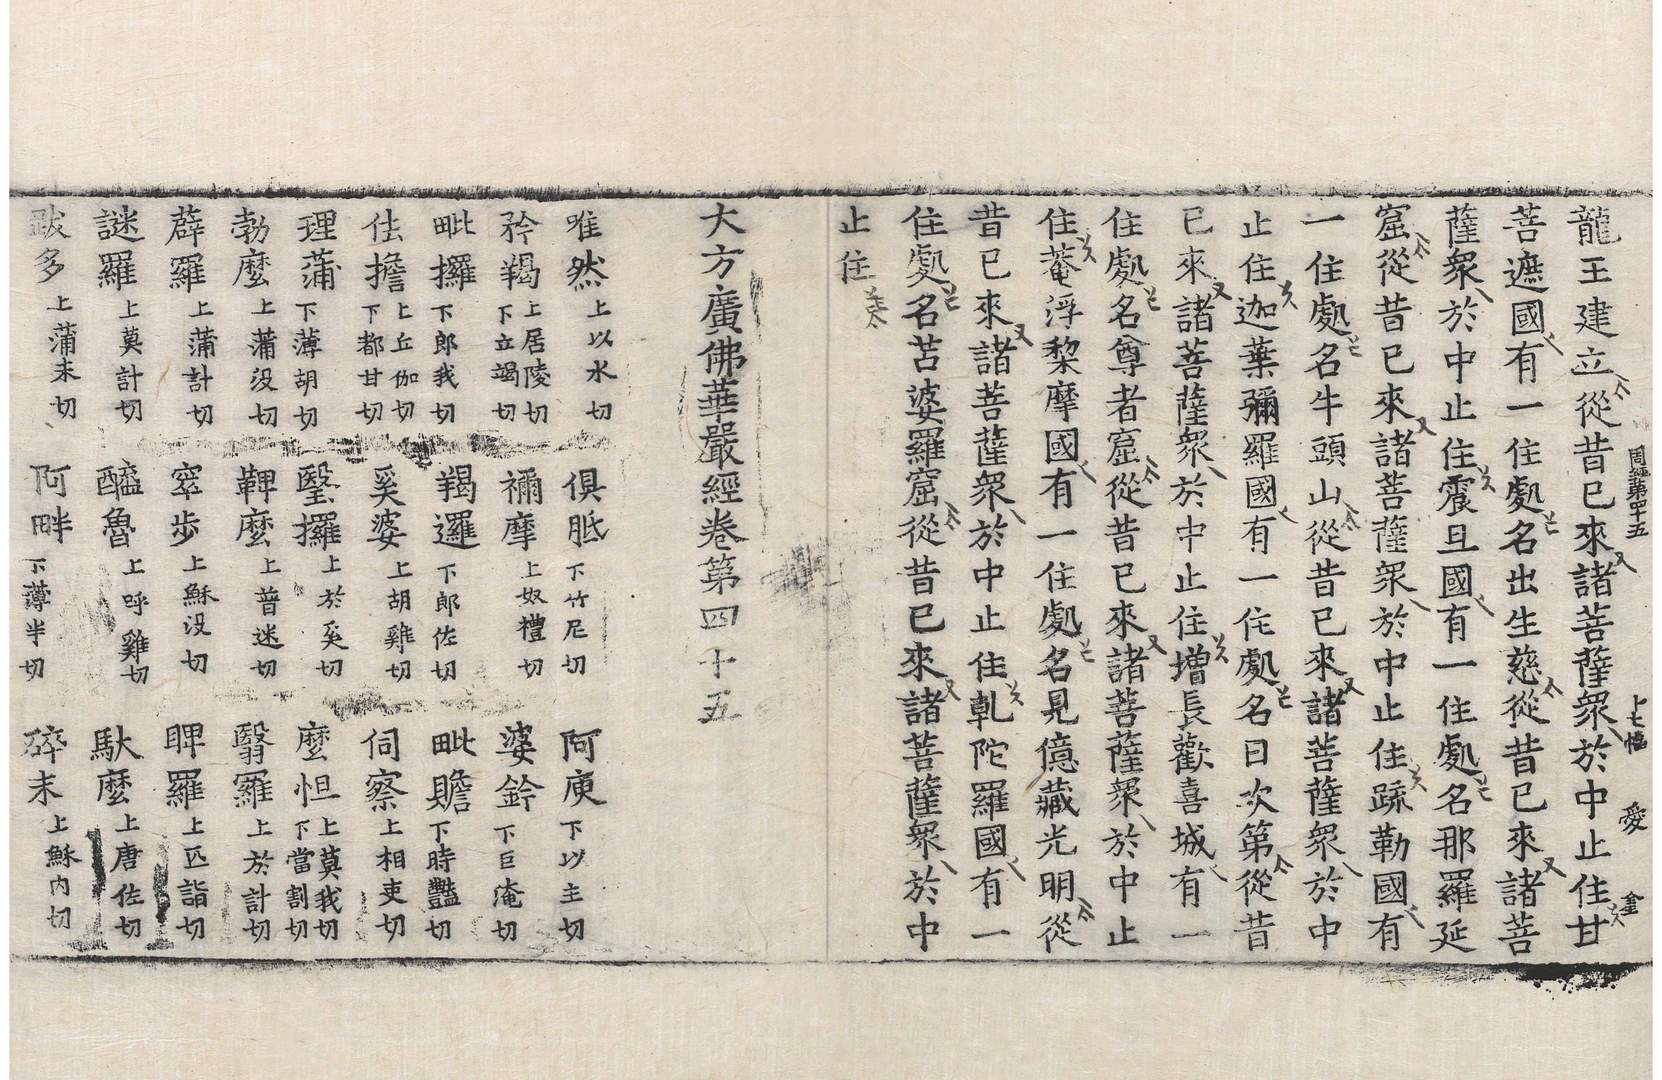 周經第四十五 卜七幅 愛 金
龍王建立從昔已來諸菩薩衆於中止住甘
菩遮國有一住處名出生慈從昔已來諸菩
薩衆於中止住震旦國有一住處名那羅延
窟從昔已來諸菩薩衆於中止住疏勒國有
一住處名牛頭山從昔已來諸菩薩衆於中
止住迦葉彌羅國有一住處名曰次第從昔
已來諸菩薩衆於中止住增長歡喜城有一
住處名尊者窟從昔已來諸菩薩衆於中止
住菴浮棃摩國有一住處名見億藏光明從
昔已來諸菩薩衆於中止住乹陀羅國有一
住處名苫婆羅窟從昔已來諸菩薩衆於中
止住
大方廣佛華嚴經卷第四十五
唯然上以水切 俱胝下竹尼切 阿庾下以主切
矜羯上居陵切下立竭切 禰摩上奴禮切 婆鈐下巨淹切
毗攞下郎我切 羯邏下郎佐切 毗贍下時豔切
佉擔上丘伽切下都甘切 奚婆上胡雞切 伺察上相吏切
理蒲下薄胡切 瑿攞上於奚切 麼怛上莫我切下當割切
勃麼上蒲没切 鞞麼上普迷切 翳羅上於計切
薜羅上蒲計切 窣步上穌没切 睥羅上匹詣切
謎羅上莫計切 醯魯上呼雞切 馱麼上唐佐切
跋多上蒲末切 阿畔下薄半切 碎末上穌内切